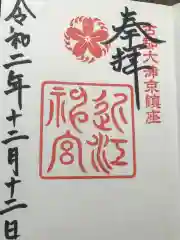 奉拝
古都大津京鎮座
近江神宮
令和二年十二月十二日